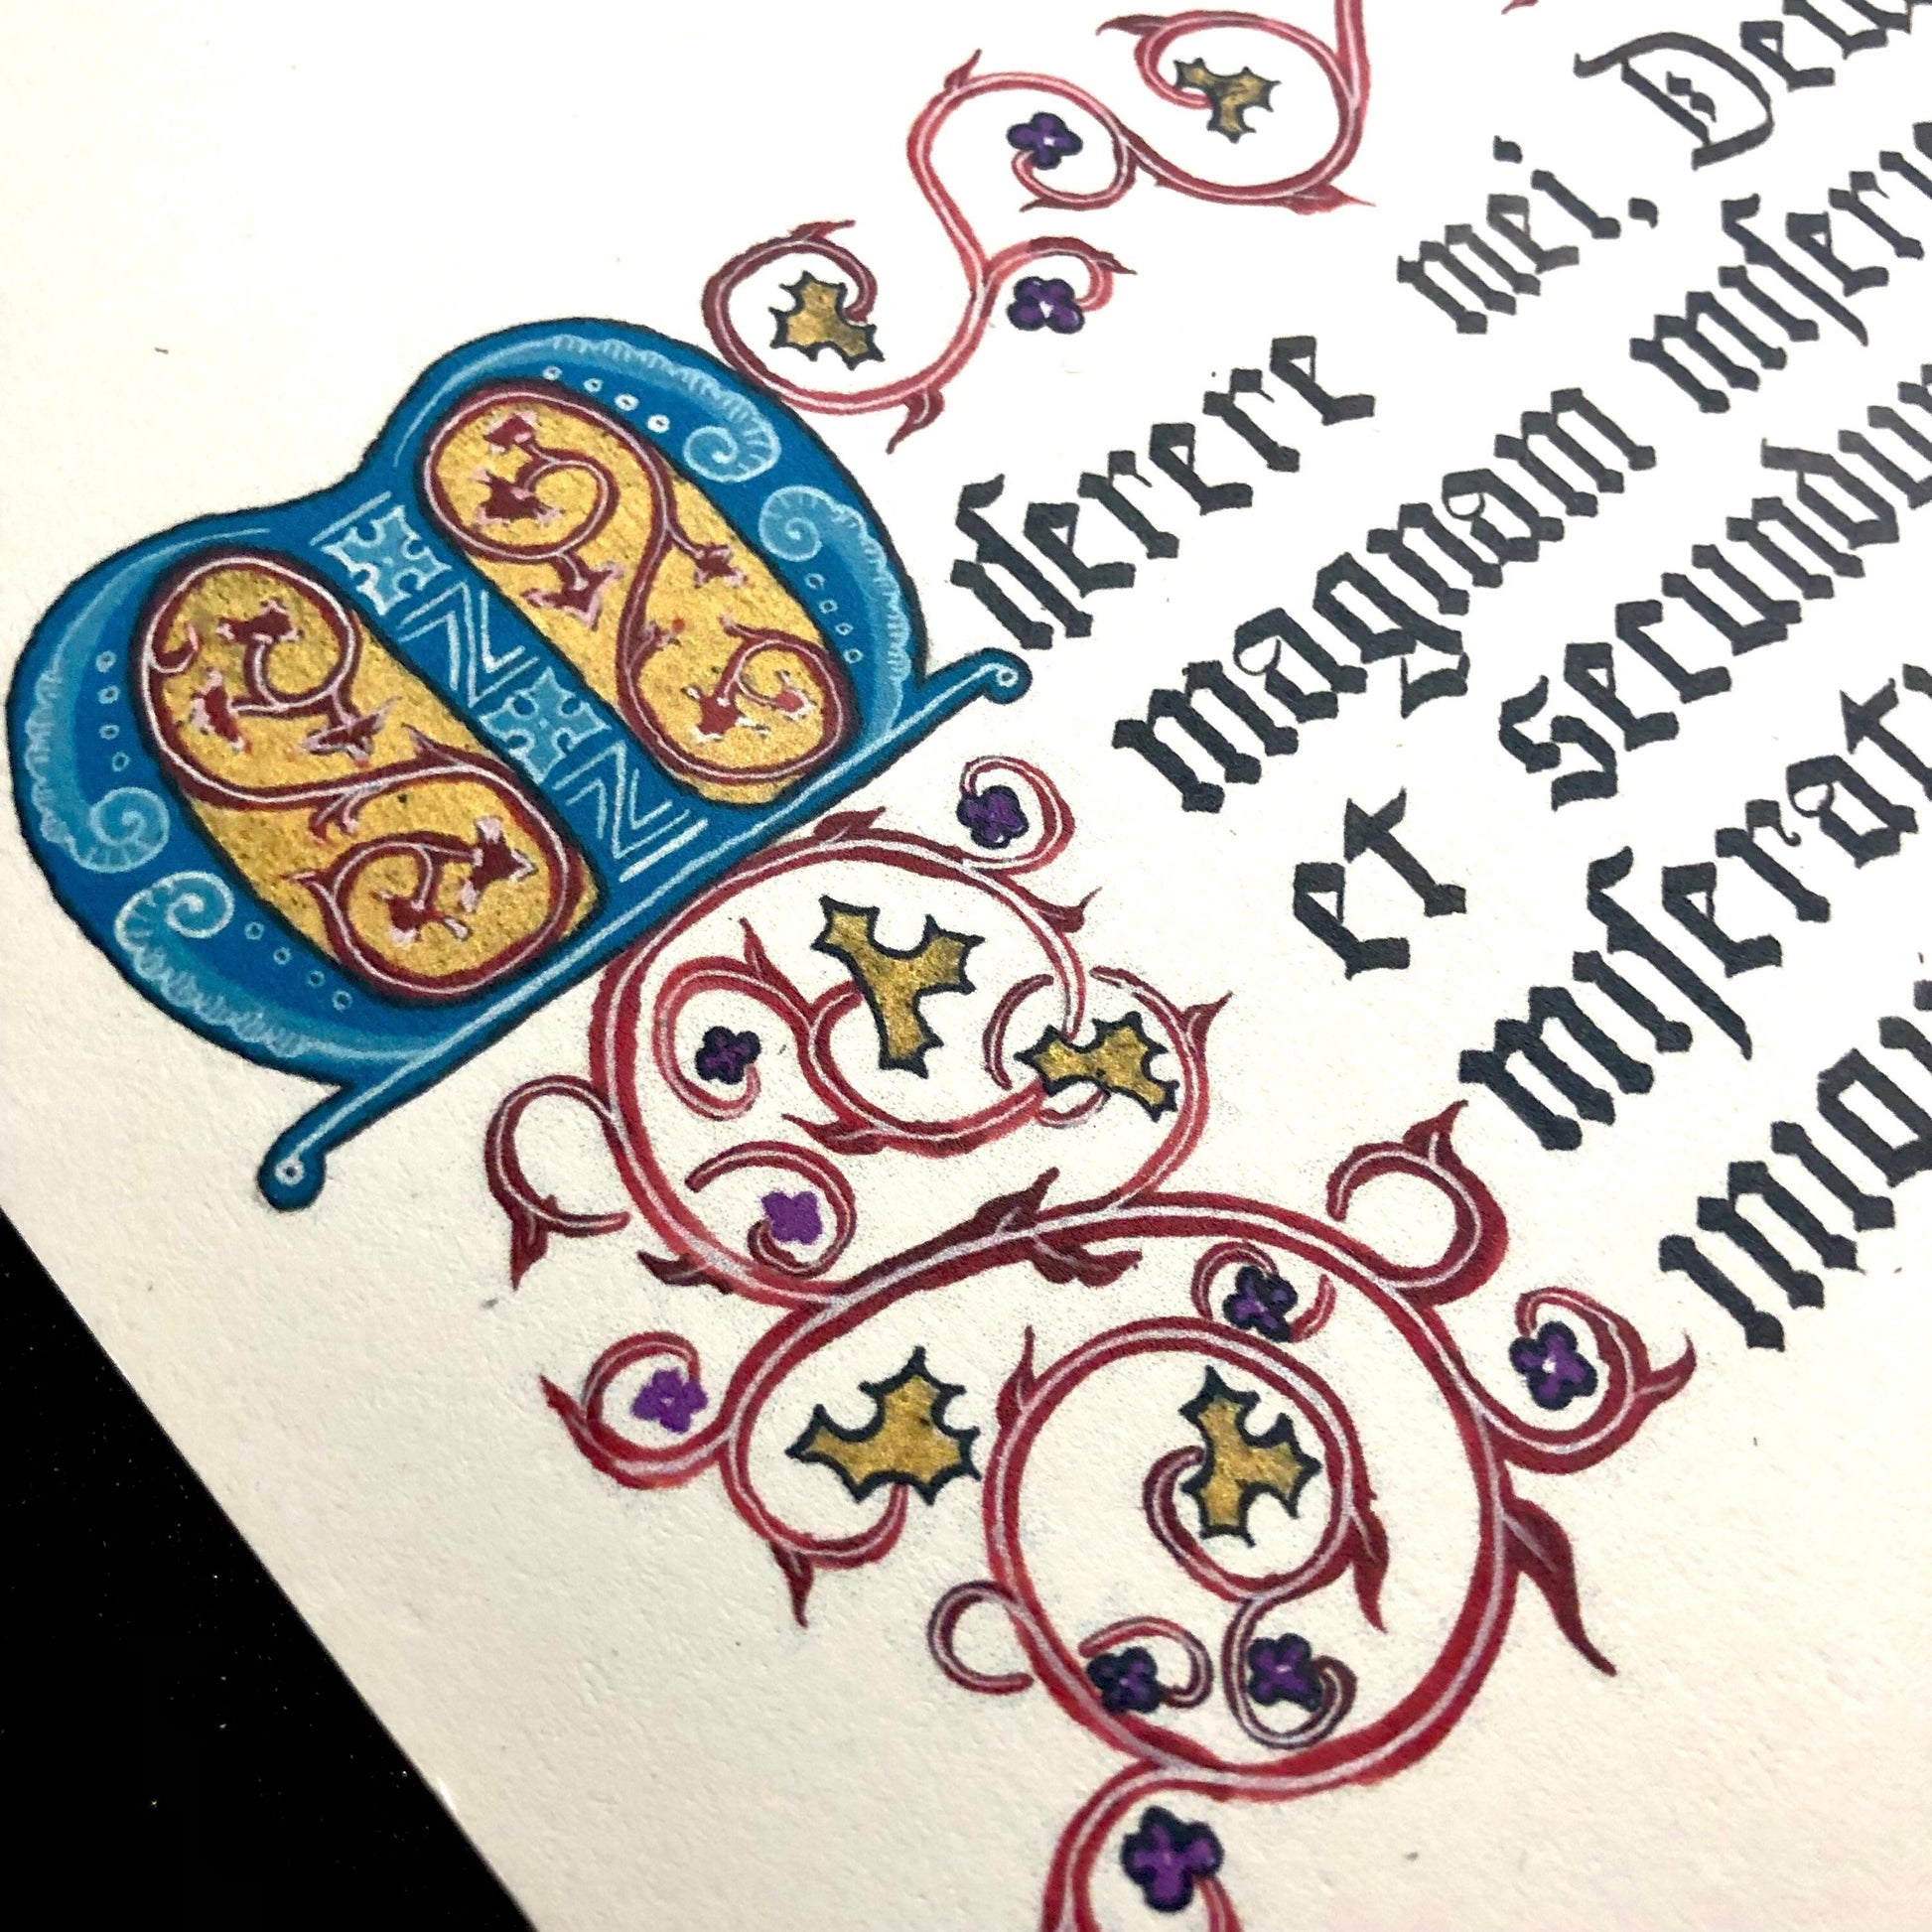 Miſerere mei, Deu
magnam miſeri
et Secundu
miſerat